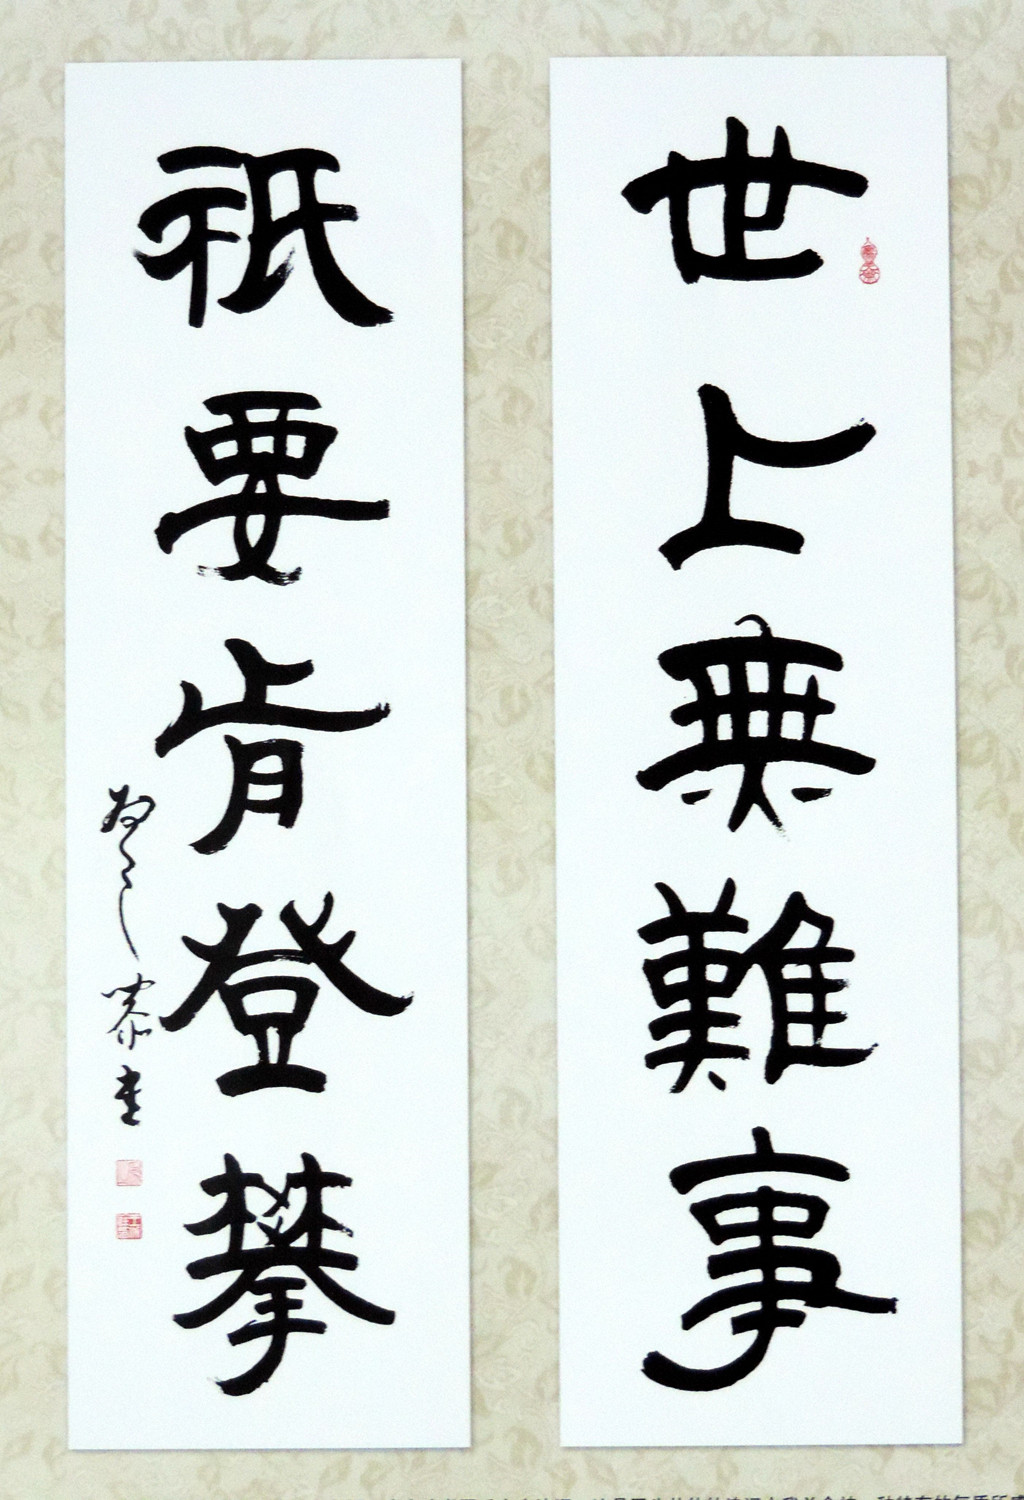 世上無難事
祇要肯登攀